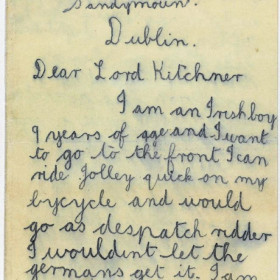 Sandymount.
Dublin.
Dear Lord Kitchner
I am an Irish boy
9 years of age and I want
to go to the front I can
ride jolley quick on my
bycycle and would
go as despatch ridder
I wouldint let the
germans get it. I am